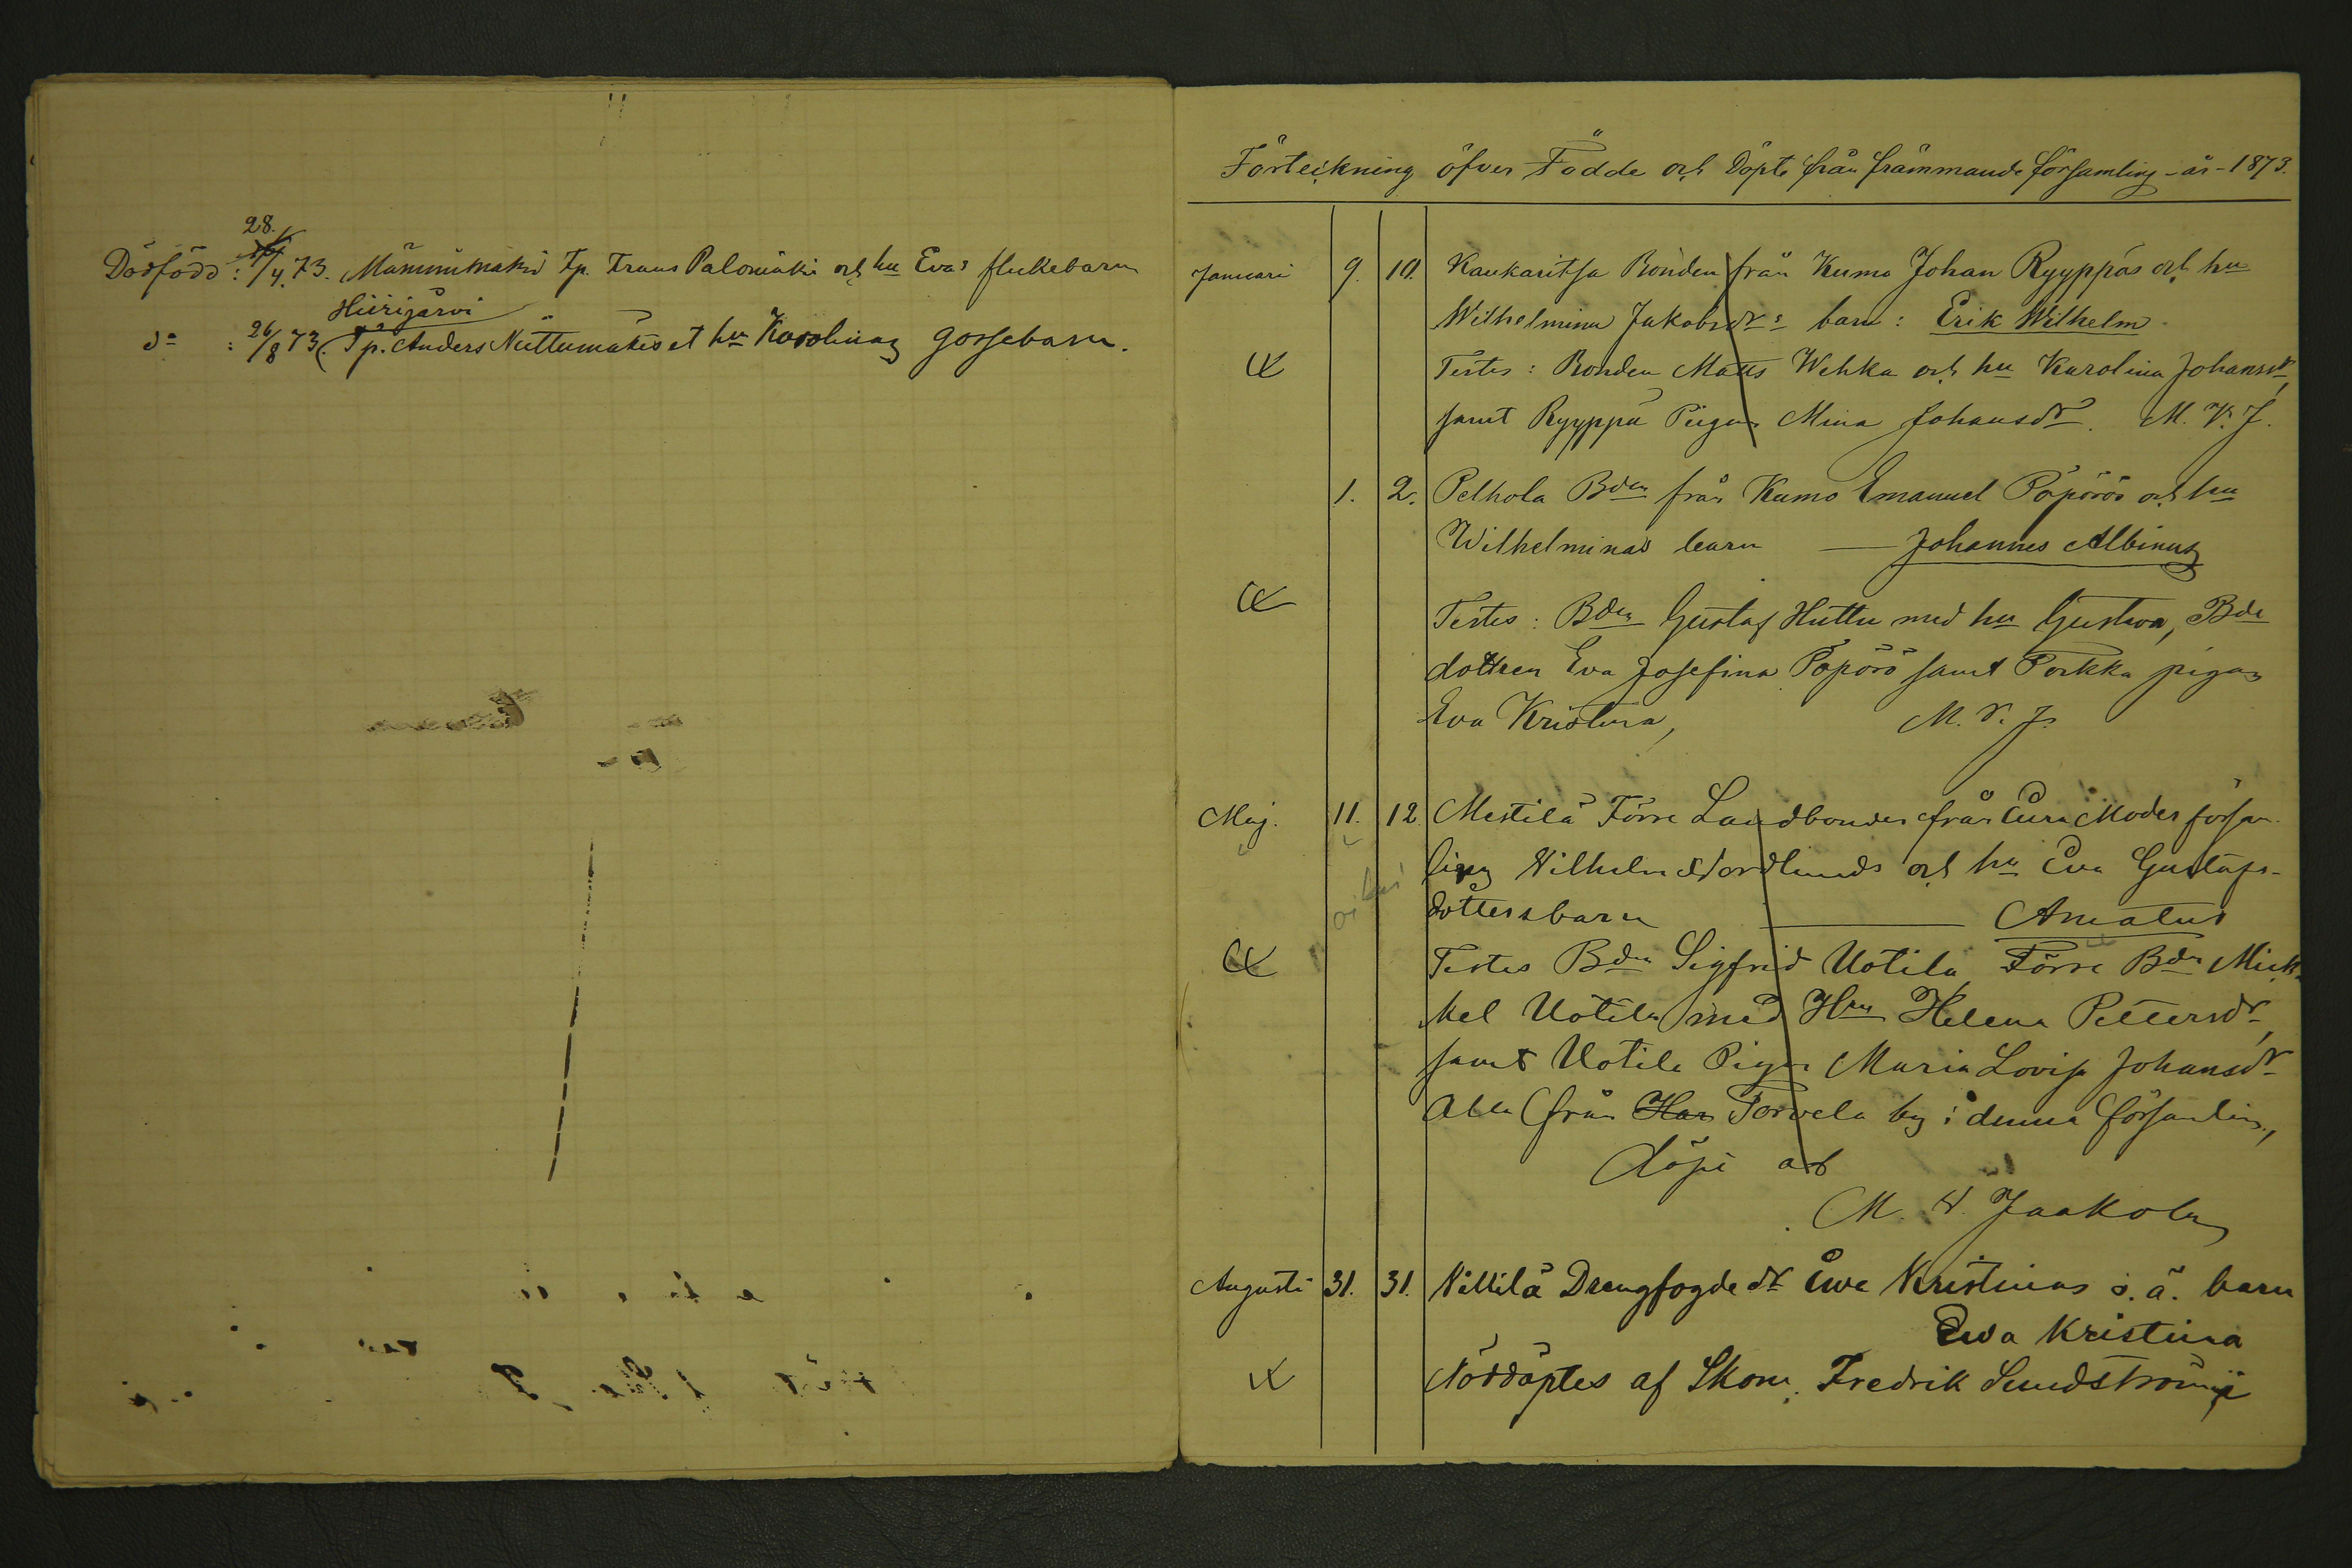 28.
Dödfödd: /4.73. Männimäki Tp. Frans Palomäki och hu Evas flickebarn
Hiirijärvi
do : 26/8 73. Tp. Anders Niittumäkis et hu Karolinas gossebarn.
Förteckning öfver Födde och Döpte från främmande församling - år - 1873.
Januari 9. 10. Kaukaritsa Bonden från Kumo Johan Ryyppäs och hu
Wilhelmina Jakobsdrs barn: Erik Wilhelm
Testes: Bonden Matts Wehka och hu Karolina Johansdr,
samt Ryyppä Pigan Mina Johansdr. M. V. J.
1. 2. Pelhola Bden från Kumo Emanuel Pöpörös och hu
Wilhelminas barn — Johannes Albinus
Testes: Bden Gustaf Huttu med hu Gustava, Bde
dottren Eva Josefina Pöpörö samt Porkka pigan
Eva Kristina, M. V. J.
Maj. 11. 12. Mestilä Förre Landbonden från Eura Moder försam-
ling Vilhelm Nordlunds och hu Eva Gustafs-
dottersbarn — Amatus
Testes Bden Sigfrid Uotila, Förre Bden Mick-
kel Uotila med Hru Helena Pettersdr,
samt Uotila Pigan Maria Lovisa Johansdr
Alla från Har Torvela by i denna församling,
döpt af
M. V. Jaakola
Augusti 31. 31. Villilä Drengfogde dr Ewa Kristinas o. ä. barn
Ewa Kristina
Nöddöptes af Skom. Fredrik Sundström